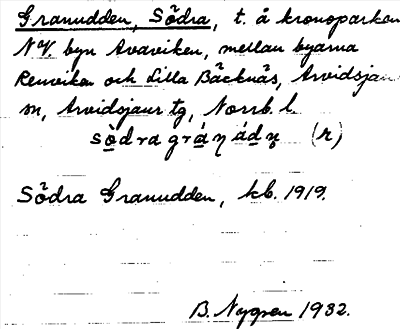 Granudden, Södra, t. å kronoparken
NV. byn Avaviken, mellan byarna
Renviken och Lilla Bäcknäs, Arvidsjaurs
sn, Arvidsjaurs tg, Norrb. l.
södra gránádn (r)
Södra Granudden, kb. 1919.
B. Nygren 1932.